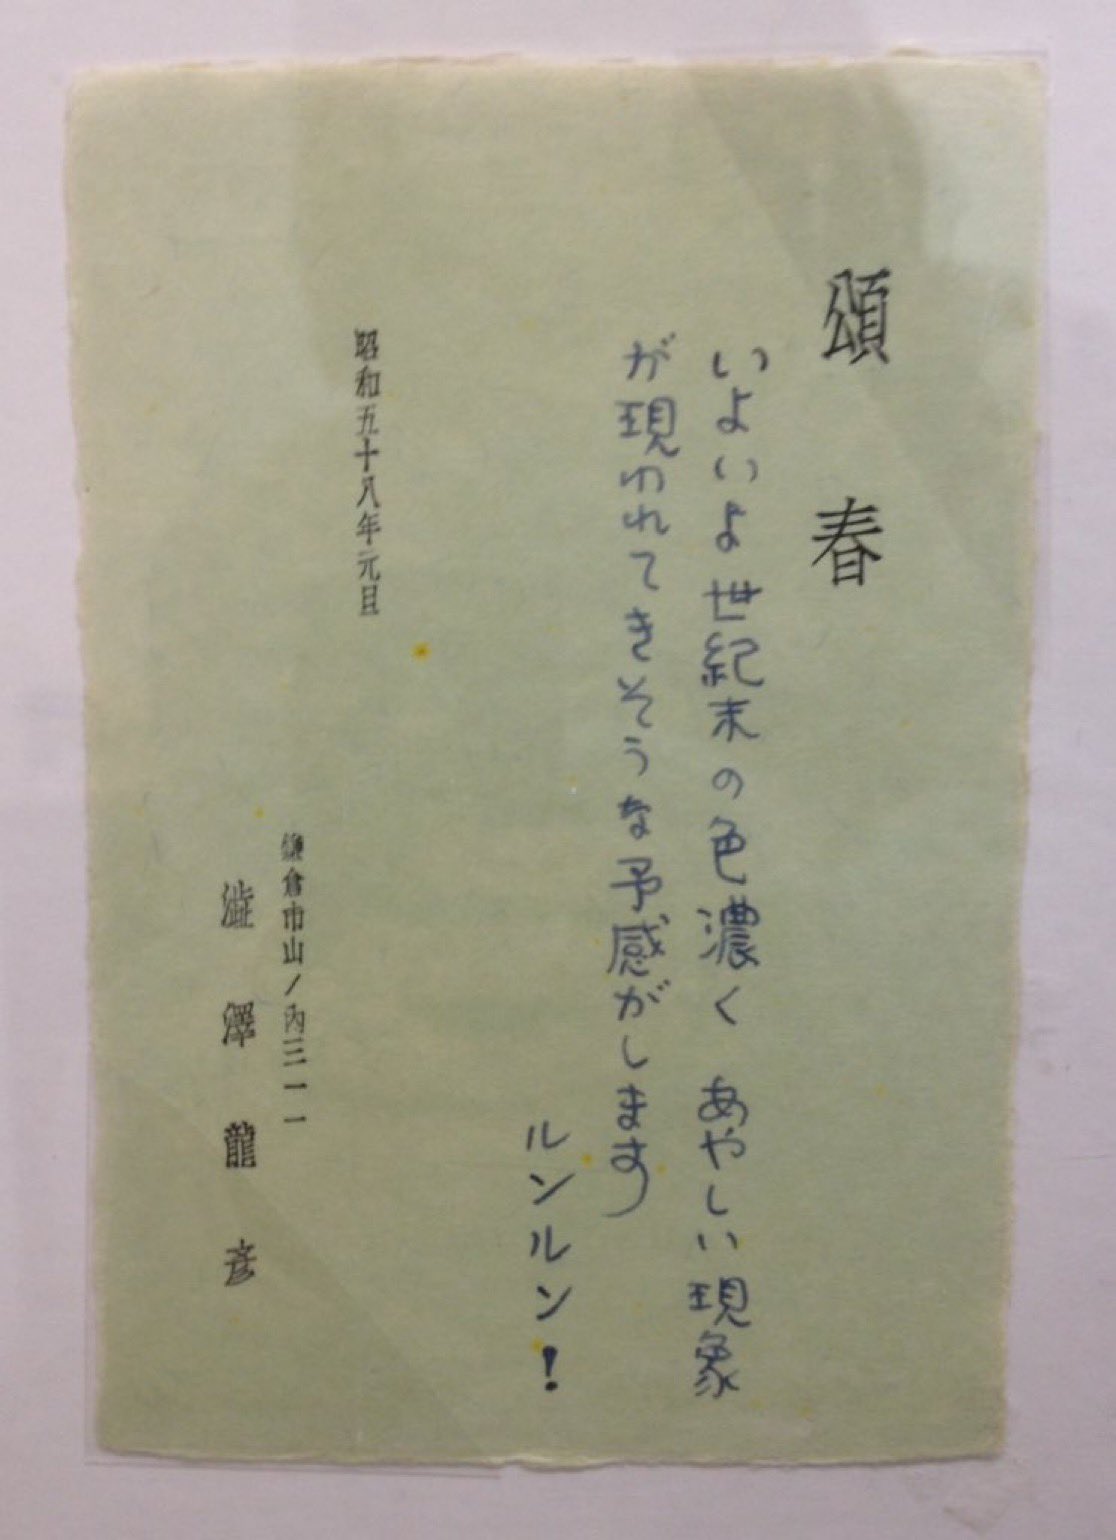 頌春
いよいよ世紀末の色濃く あやしい現象
が現われてきそうな予感がします
ルンルン!
昭和五十八年元旦
鎌倉市山ノ內三一一
澁澤龍彥